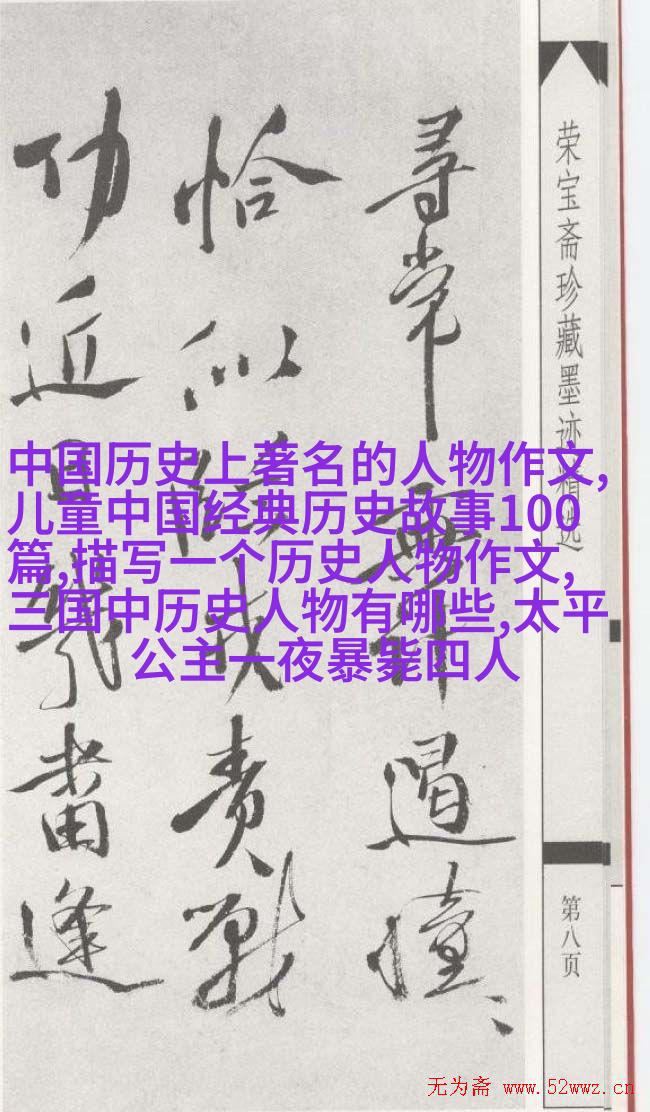 荣宝斋珍藏墨迹精选
第八页
尋常
遏憧
恰似
責戰
功近
番逢
中国历史上著名的人物作文,
儿童中国经典历史故事100
篇,描写一个历史人物作文,
三国中历史人物有哪些,太平
公主一夜暴毙四人
无为斋 www.52wwz.cn